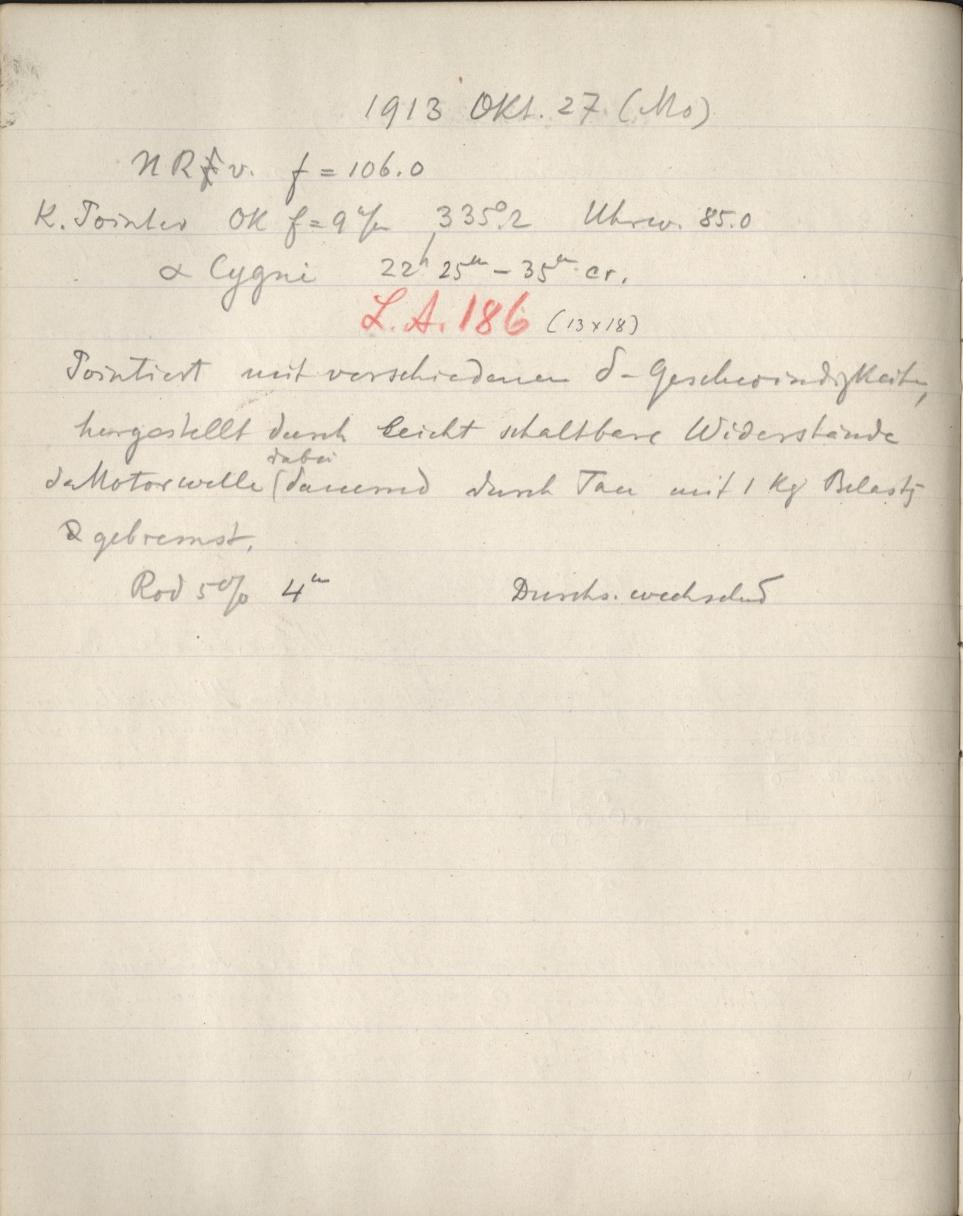 1913 Okt. 27. (Mo)
N R v. f = 106.0
K. Pointer OK f = 9 335°.2 Uhrw. 85.0
α Cygni 22h 25m – 35m cr.
L.A. 186 (13 x 18)
Pointiert mit verschiedenen δ-Geschwindigkeiten,
hergestellt durch leicht schaltbare Widerstände
Motorwelle dabei dauernd durch Tau mit 1 Kg Belastg
gebremst.
Rod 5% 4m Durchs. wechselnd